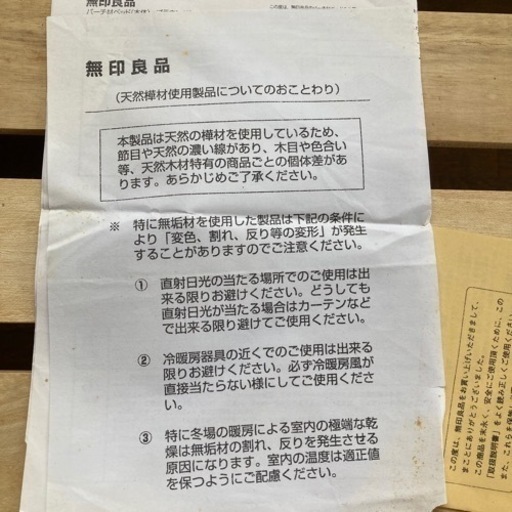 無印良品
無印良品
(天然樺材使用製品についてのおことわり)
本製品は天然の樺材を使用しているため、
節目や天然の濃い線があり、木目や色合い
等、天然木材特有の商品ごとの個体差があ
ります。あらかじめご了承ください。
※ 特に無垢材を使用した製品は下記の条件に
より「変色、割れ、反り等の変形」が発生
することがありますのでご注意ください。
① 直射日光の当たる場所でのご使用は出
来る限りお避けください。どうしても
直射日光が当たる場合はカーテンなど
で出来る限り避けてご使用ください。
② 冷暖房器具の近くでのご使用は出来る
限りお避けください。必ず冷暖房風が
直接当たらない様にしてご使用くださ
い。
③ 特に冬場の暖房による室内の極端な乾
燥は無垢材の割れ、反りを発生させる
原因になります。室内の温度は適正値
を保つようにご配慮ください。
この度は、無印良品をお買い上げいただきまして、
まことにありがとうございました。
この商品を末永く、安全にご使用頂くために、この
「取扱説明書」をよく読み正しくご使用ください
また、これらを保管